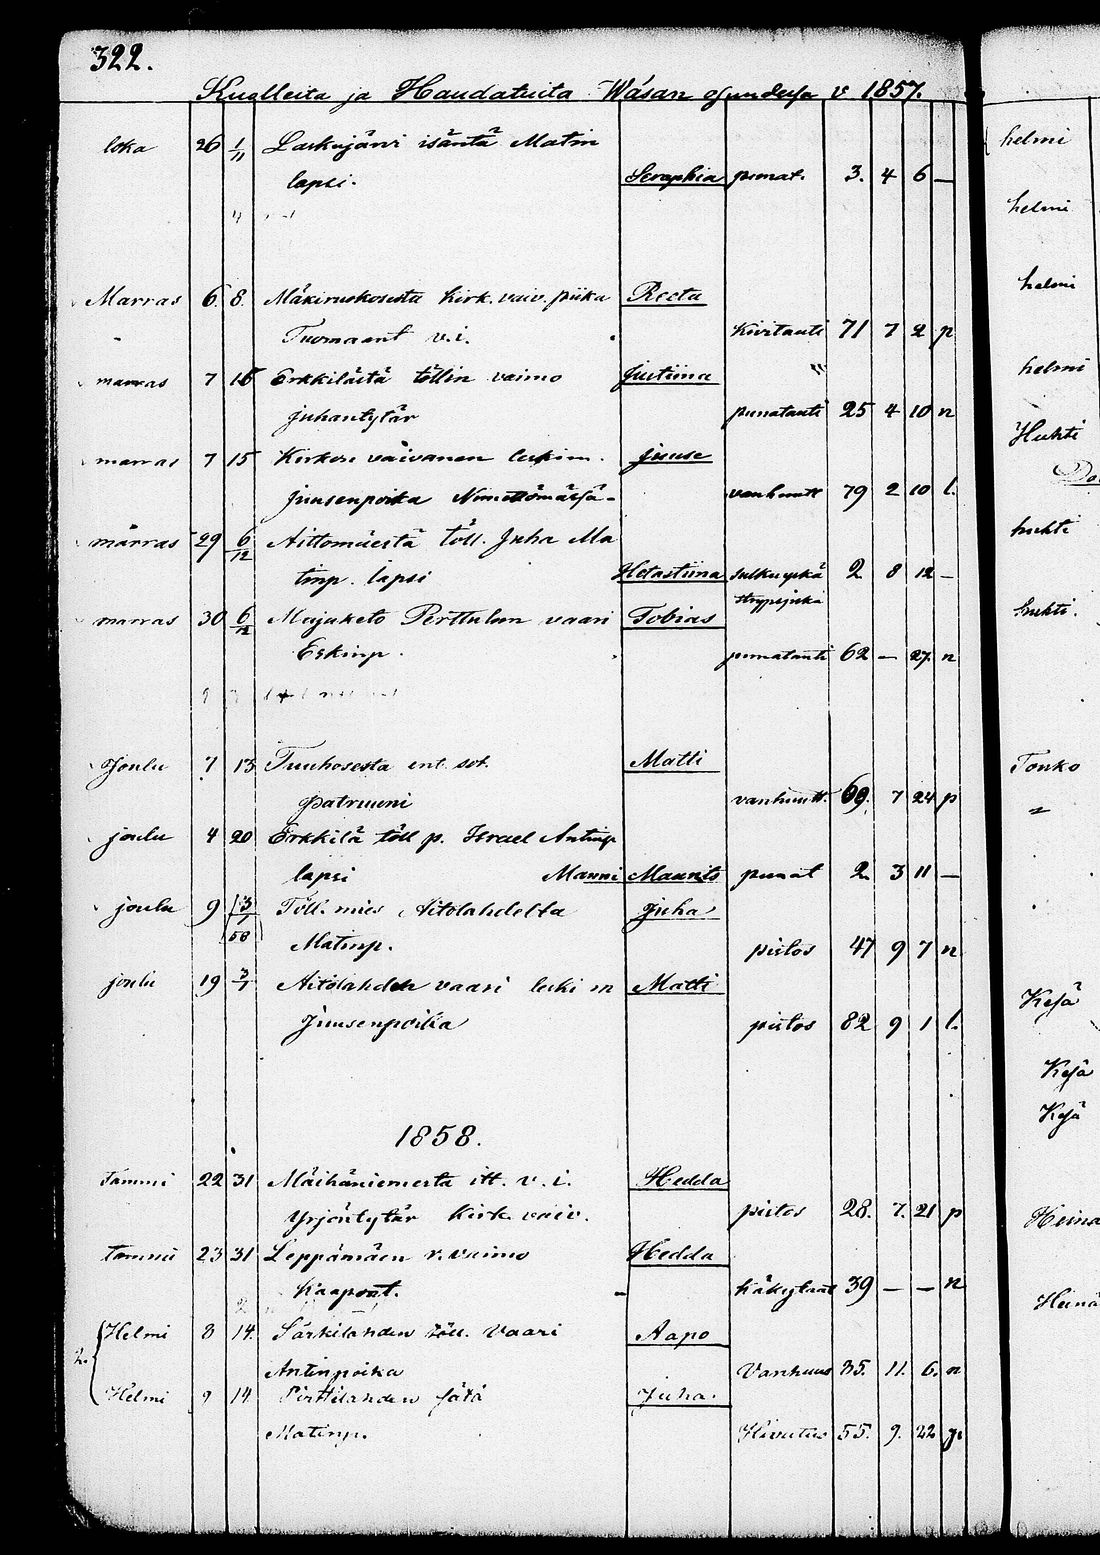 322.
Kuolleita ja Haudatuita Wäsan ofundesfa v 1857.
loka 26 1/11 Laskujärvi isäntä Matin
lapsi. Seraphia punat. 3. 4 6 —
Marras 6 8. Mäkiruskosesta Kirk. vaiv. piika Reeta
Tuomaant v.i. kivitauti 71 7 2 p
marras 7 15 Erkkilästä töllin vaimo Justiina "
Juhantytär punatauti 25 4 10 n
marras 7 15 Kirkon vaivanen leskim. Juuse
Juusenpoika Nimettömäsfä- vanhuutt 79 2 10 l.
marras 29 6/12 Aittomäestä töll. Juha Ma
tinp. lapsi Hetastiina 2 8 12 —
marras 30 6/12 Majaketo Perttulun vaari Tobias
Eskinp. punatauti 62 — 27. n
Joulu 7 13 Tuuhosesta ent. sot. Matti
patruuni vanhuutt. 69. 7 24 p
joulu 4 20 Erkkilä töll p. Israel Antinp
lapsi Manni Maunits punat 2 3 11 —
joulu 9 3/1 58 Töll. mies Aitolahdelta Juha
Matinp. pistos 47 9 7 n
joulu 19 3/1 Aitolahden vaari leski m Matti
Juusenpoika pistos 82 9 1 l.
1858.
Tammi 22 31 Mäihäniemestä itt. v. i. Hedda
Yrjöntytär Kirk. vaiv. pistos 28. 7. 21 p
Tammi 23 31 Leppämäen v. vaimo Hedda
Kaapont. 39 — — n
2. Helmi 8 14. Särkilahden töll. Vaari Aapo
Antinpoika Vanhuus 35. 11. 6. n
Helmi 9 14 Pirttilahden Juha.
Matinp. Hivutus 55. 9. 22 p.
helmi
helmi
helmi
helmi
Huhti
huhti
huhti.
Touko
Kesä
Kesä
Kesä
Heinä
Heinä